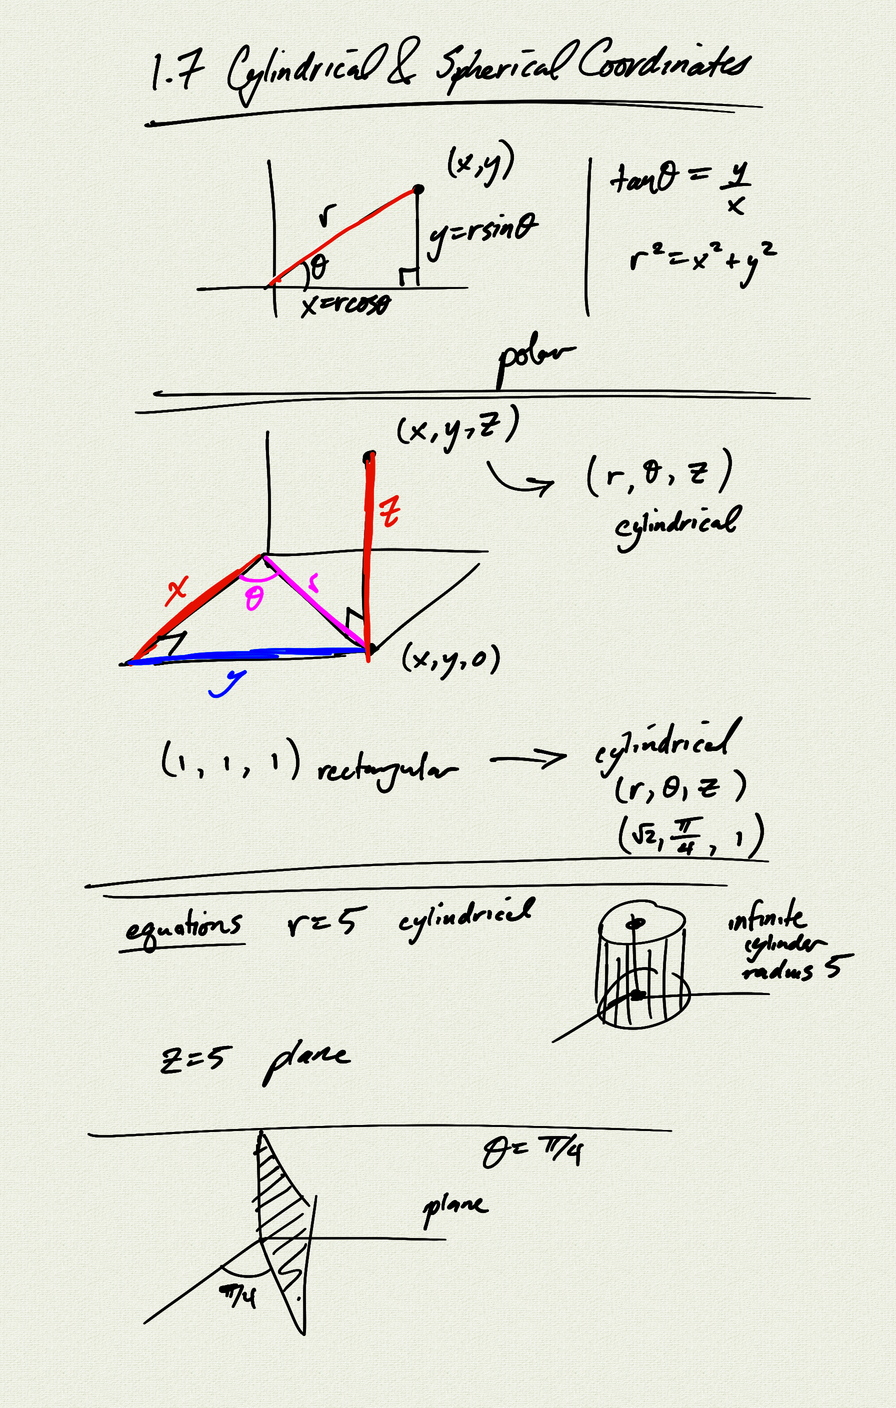 1.7 Cylindrical & Spherical Coordinates
(x,y)
r
θ
y=rsinθ
x=rcosθ
tanθ = y/x
r²=x²+y²
polar
(x,y,z)
(r,θ,z)
cylindrical
z
x
θ
r
y
(x,y,0)
(1,1,1) rectangular → cylindrical
(r,θ,z)
(√2, π/4, 1)
equations r=5 cylindrical
infinite
cylinder
radius 5
z=5 plane
θ=π/4
plane
π/4